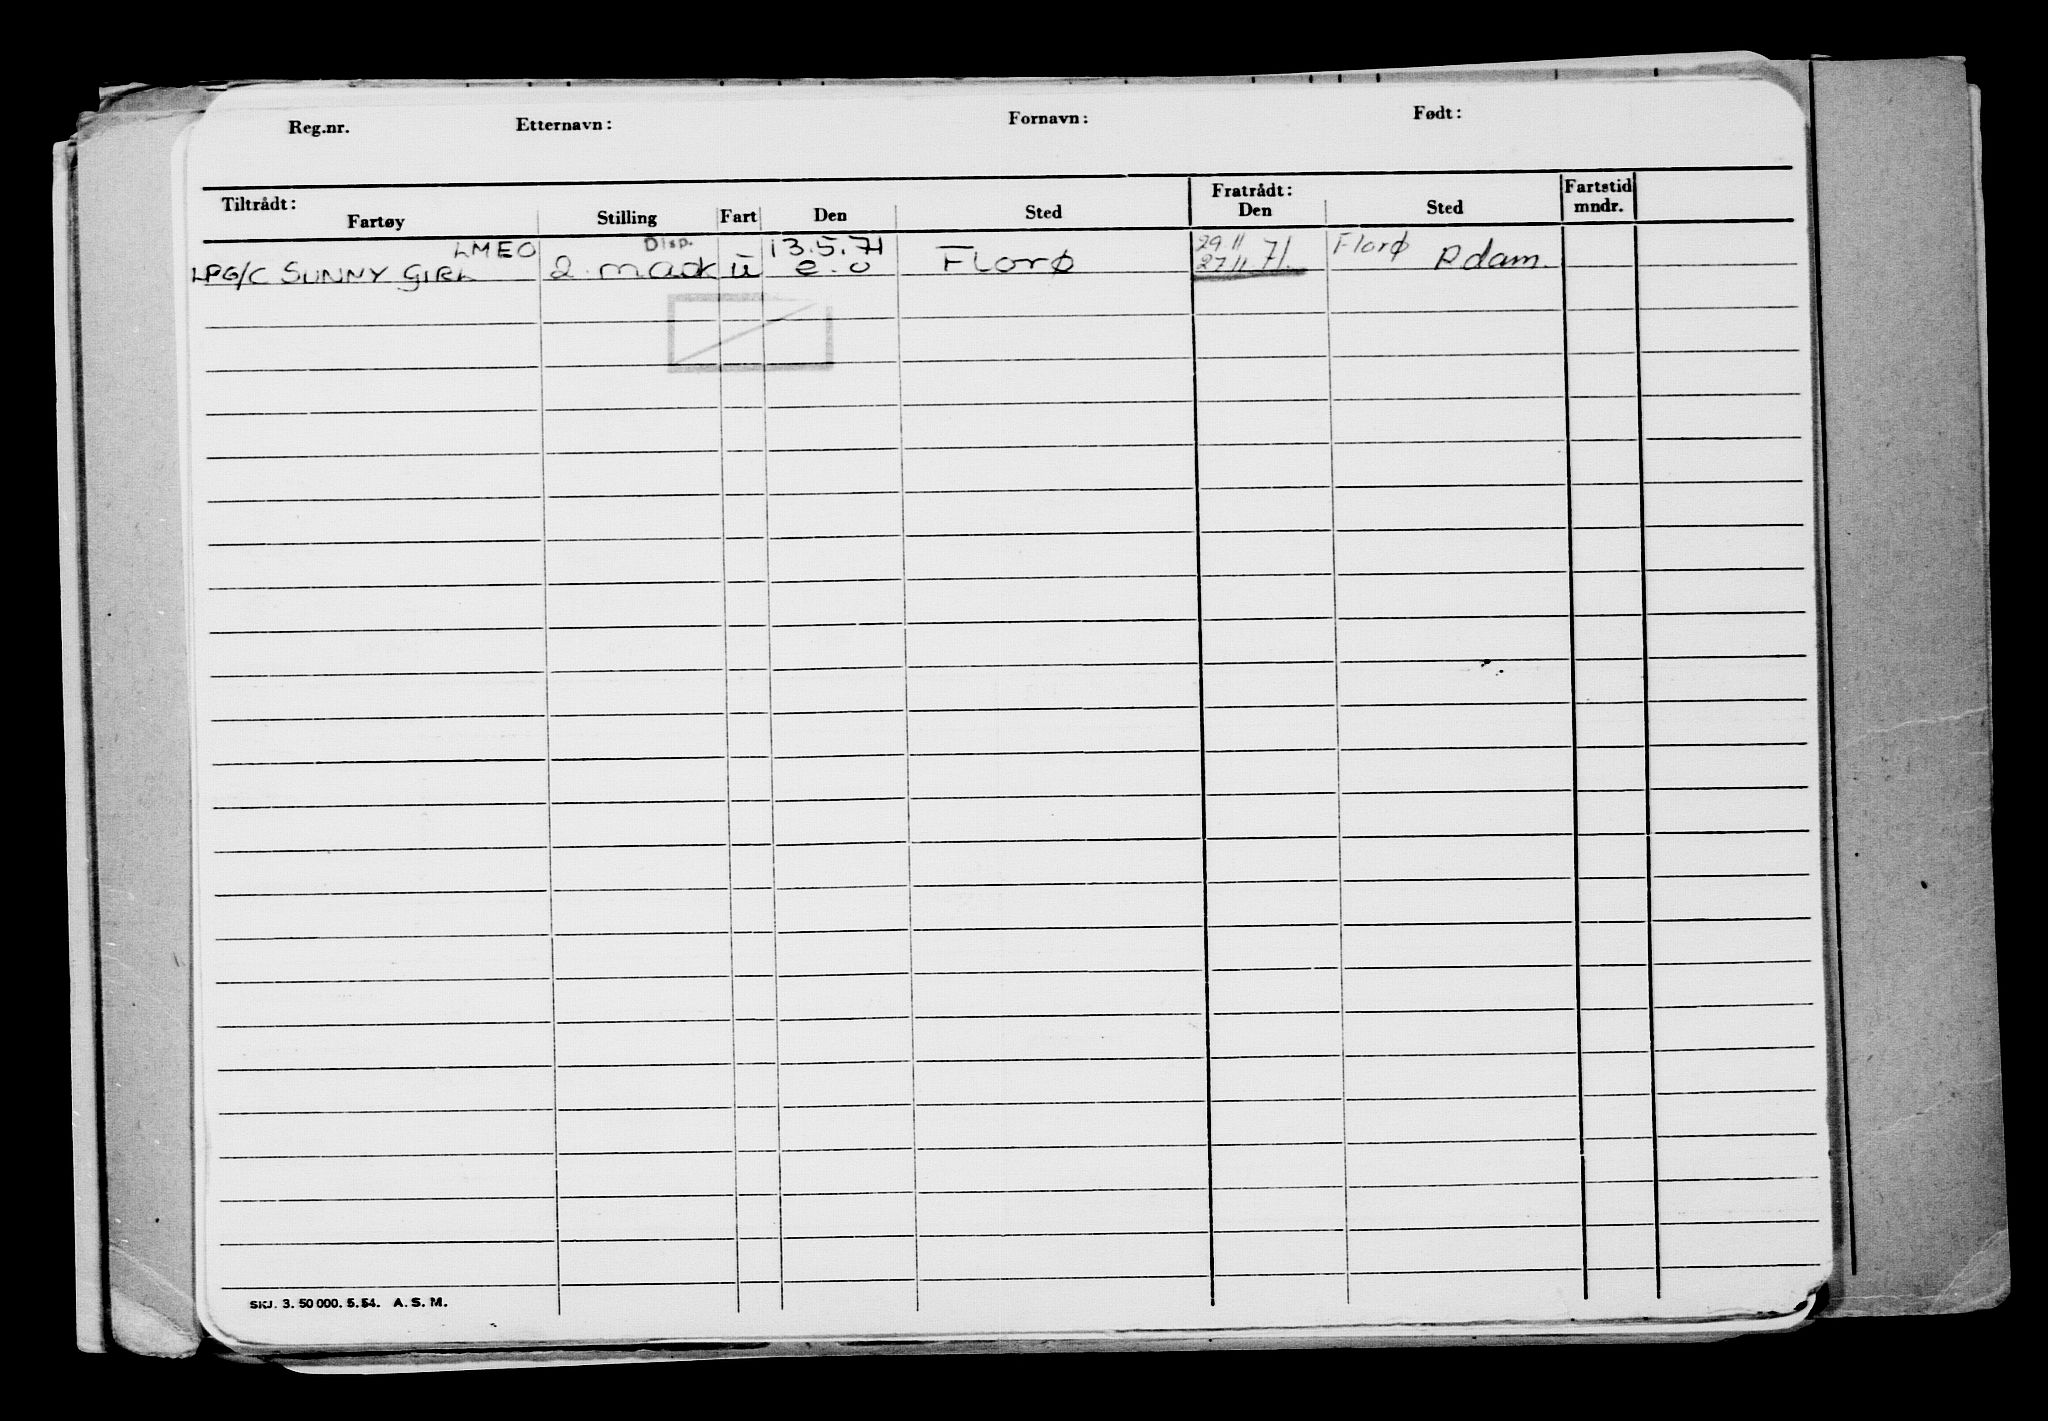 Reg.nr. Etternavn: Fornavn: Født:
Tiltrådt: Fratrådt: Fartstid
Fartøy Stilling Fart Den Sted Den Sted mndr.
LMEO Disp. 13.5.71 29.11 Florø
LPG/C SUNNY GIRL 2. mask ü e.o Florø 27.11 71. Rdam.
SKJ. 3. 50 000. 5.54. A. S. M.